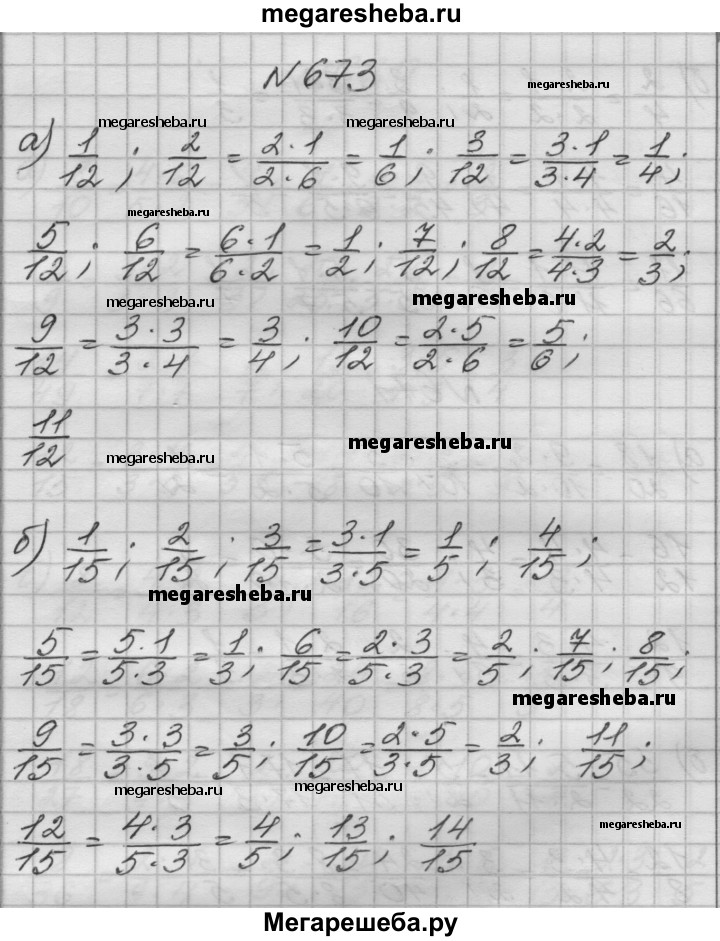 megaresheba.ru
N 673
megaresheba.ru
megaresheba.ru megaresheba.ru
а) 1/12; 2/12 = 2·1/2·6 = 1/6; 3/12 = 3·1/3·4 = 1/4;
megaresheba.ru
5/12; 6/12 = 6·1/6·2 = 1/2; 7/12; 8/12 = 4·2/4·3 = 2/3;
megaresheba.ru megaresheba.ru
9/12 = 3·3/3·4 = 3/4; 10/12 = 2·5/2·6 = 5/6;
11/12
megaresheba.ru megaresheba.ru
б) 1/15; 2/15; 3/15 = 3·1/3·5 = 1/5; 4/15;
megaresheba.ru
5/15 = 5·1/5·3 = 1/3; 6/15 = 2·3/5·3 = 2/5; 7/15; 8/15;
megaresheba.ru
9/15 = 3·3/3·5 = 3/5; 10/15 = 2·5/3·5 = 2/3; 11/15;
megaresheba.ru megaresheba.ru
12/15 = 4·3/5·3 = 4/5; 13/15; 14/15
megaresheba.ru
Мегарешеба.ру